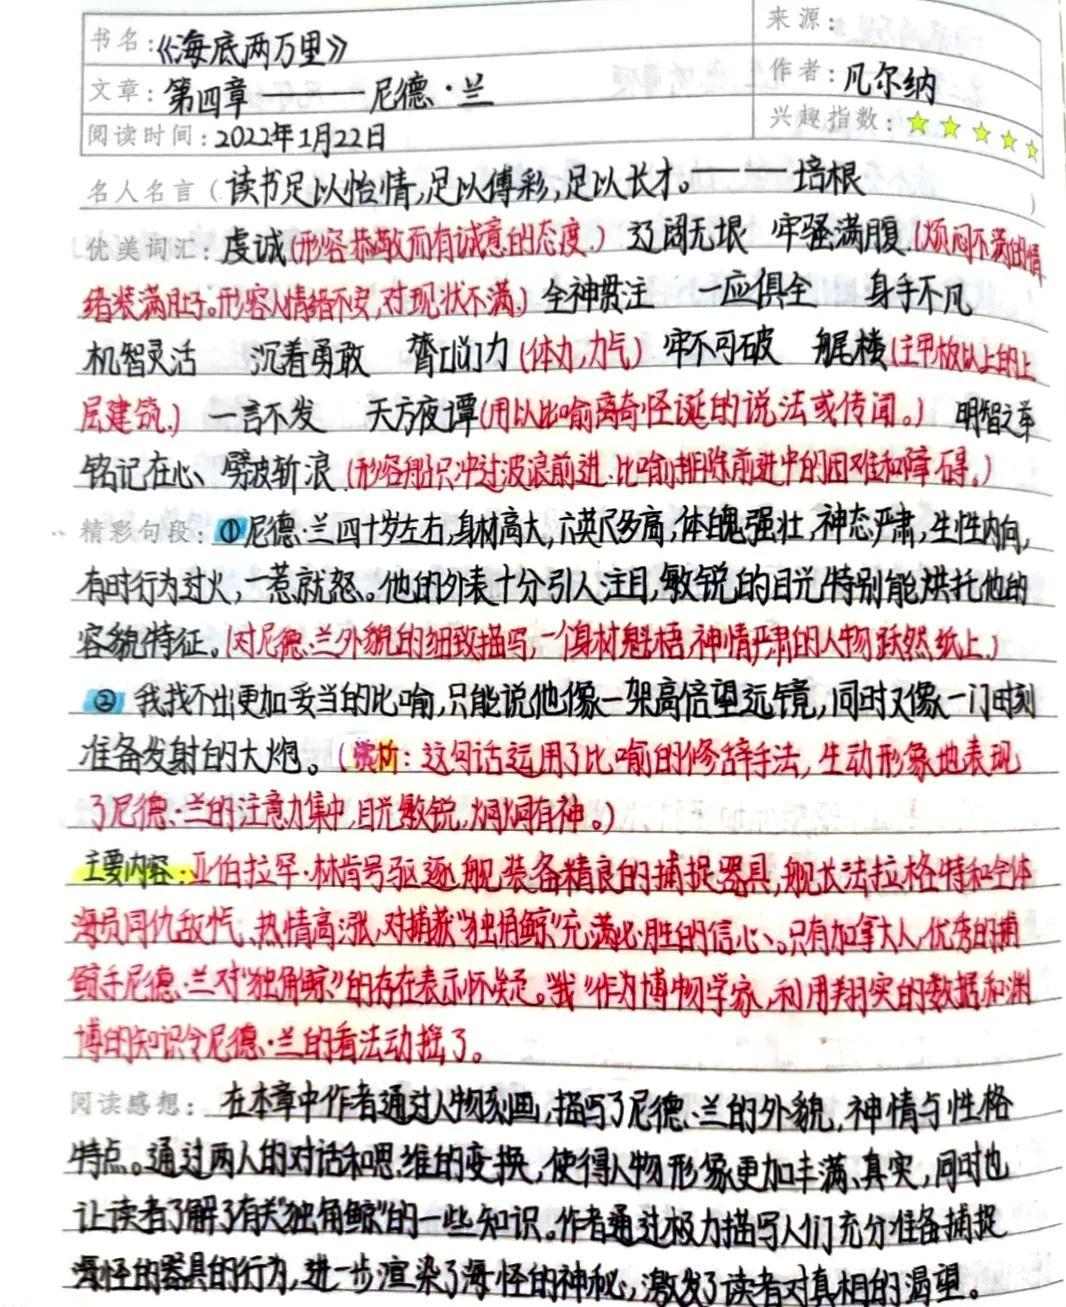 书名:《海底两万里》
来源:
文章:第四章——尼德·兰
作者:凡尔纳
阅读时间:2022年1月22日
兴趣指数:☆☆☆☆☆
名人名言(读书足以怡情,足以傅彩,足以长才。——培根)
优美词汇:虔诚(形容恭敬而有诚意的态度。) 辽阔无垠 牢骚满腹(烦闷不满的情
绪装满肚子。形容人情绪不安,对现状不满。) 全神贯注 一应俱全 身手不凡
机智灵活 沉着勇敢 膂力(体力,力气) 牢不可破 艉楼(主甲板以上的上
层建筑。) 一言不发 天方夜谭(用以比喻离奇怪诞的说法或传闻。) 明智之举
铭记在心、劈波斩浪(形容船只冲过波浪前进.比喻排除前进中的困难和障碍。)
精彩句段:①尼德·兰四十岁左右,身材高大,六英尺多高,体魄强壮,神态严肃,生性内向,
有时行为过火,一惹就怒。他的外表十分引人注目,敏锐的目光特别能烘托他的
容貌特征。(对尼德·兰外貌的细致描写,一个身材魁梧,神情严肃的人物跃然纸上。)
②我找不出更加妥当的比喻,只能说他像一架高倍望远镜,同时又像一门时刻
准备发射的大炮。(赏析:这句话运用了比喻的修辞手法,生动形象地表现
了尼德·兰的注意力集中,目光敏锐,炯炯有神。)
主要内容:亚伯拉罕·林肯号驱逐舰装备精良的捕捉器具,舰长法拉格特和全体
海员同仇敌忾,热情高涨,对捕获"独角鲸"充满必胜的信心、。只有加拿大人,优秀的捕
鲸手尼德·兰对"独角鲸"的存在表示怀疑。"我"作为博物学家,利用翔实的数据和渊
博的知识令尼德·兰的看法动摇了。
阅读感想:在本章中作者通过人物刻画,描写了尼德·兰的外貌,神情与性格
特点。通过两人的对话和思维的变换,使得人物形象更加丰满、真实,同时也
让读者了解了有关"独角鲸"的一些知识。作者通过极力描写人们充分准备捕捉
海怪的器具的行为,进一步渲染了海怪的神秘,激发了读者对真相的渴望。